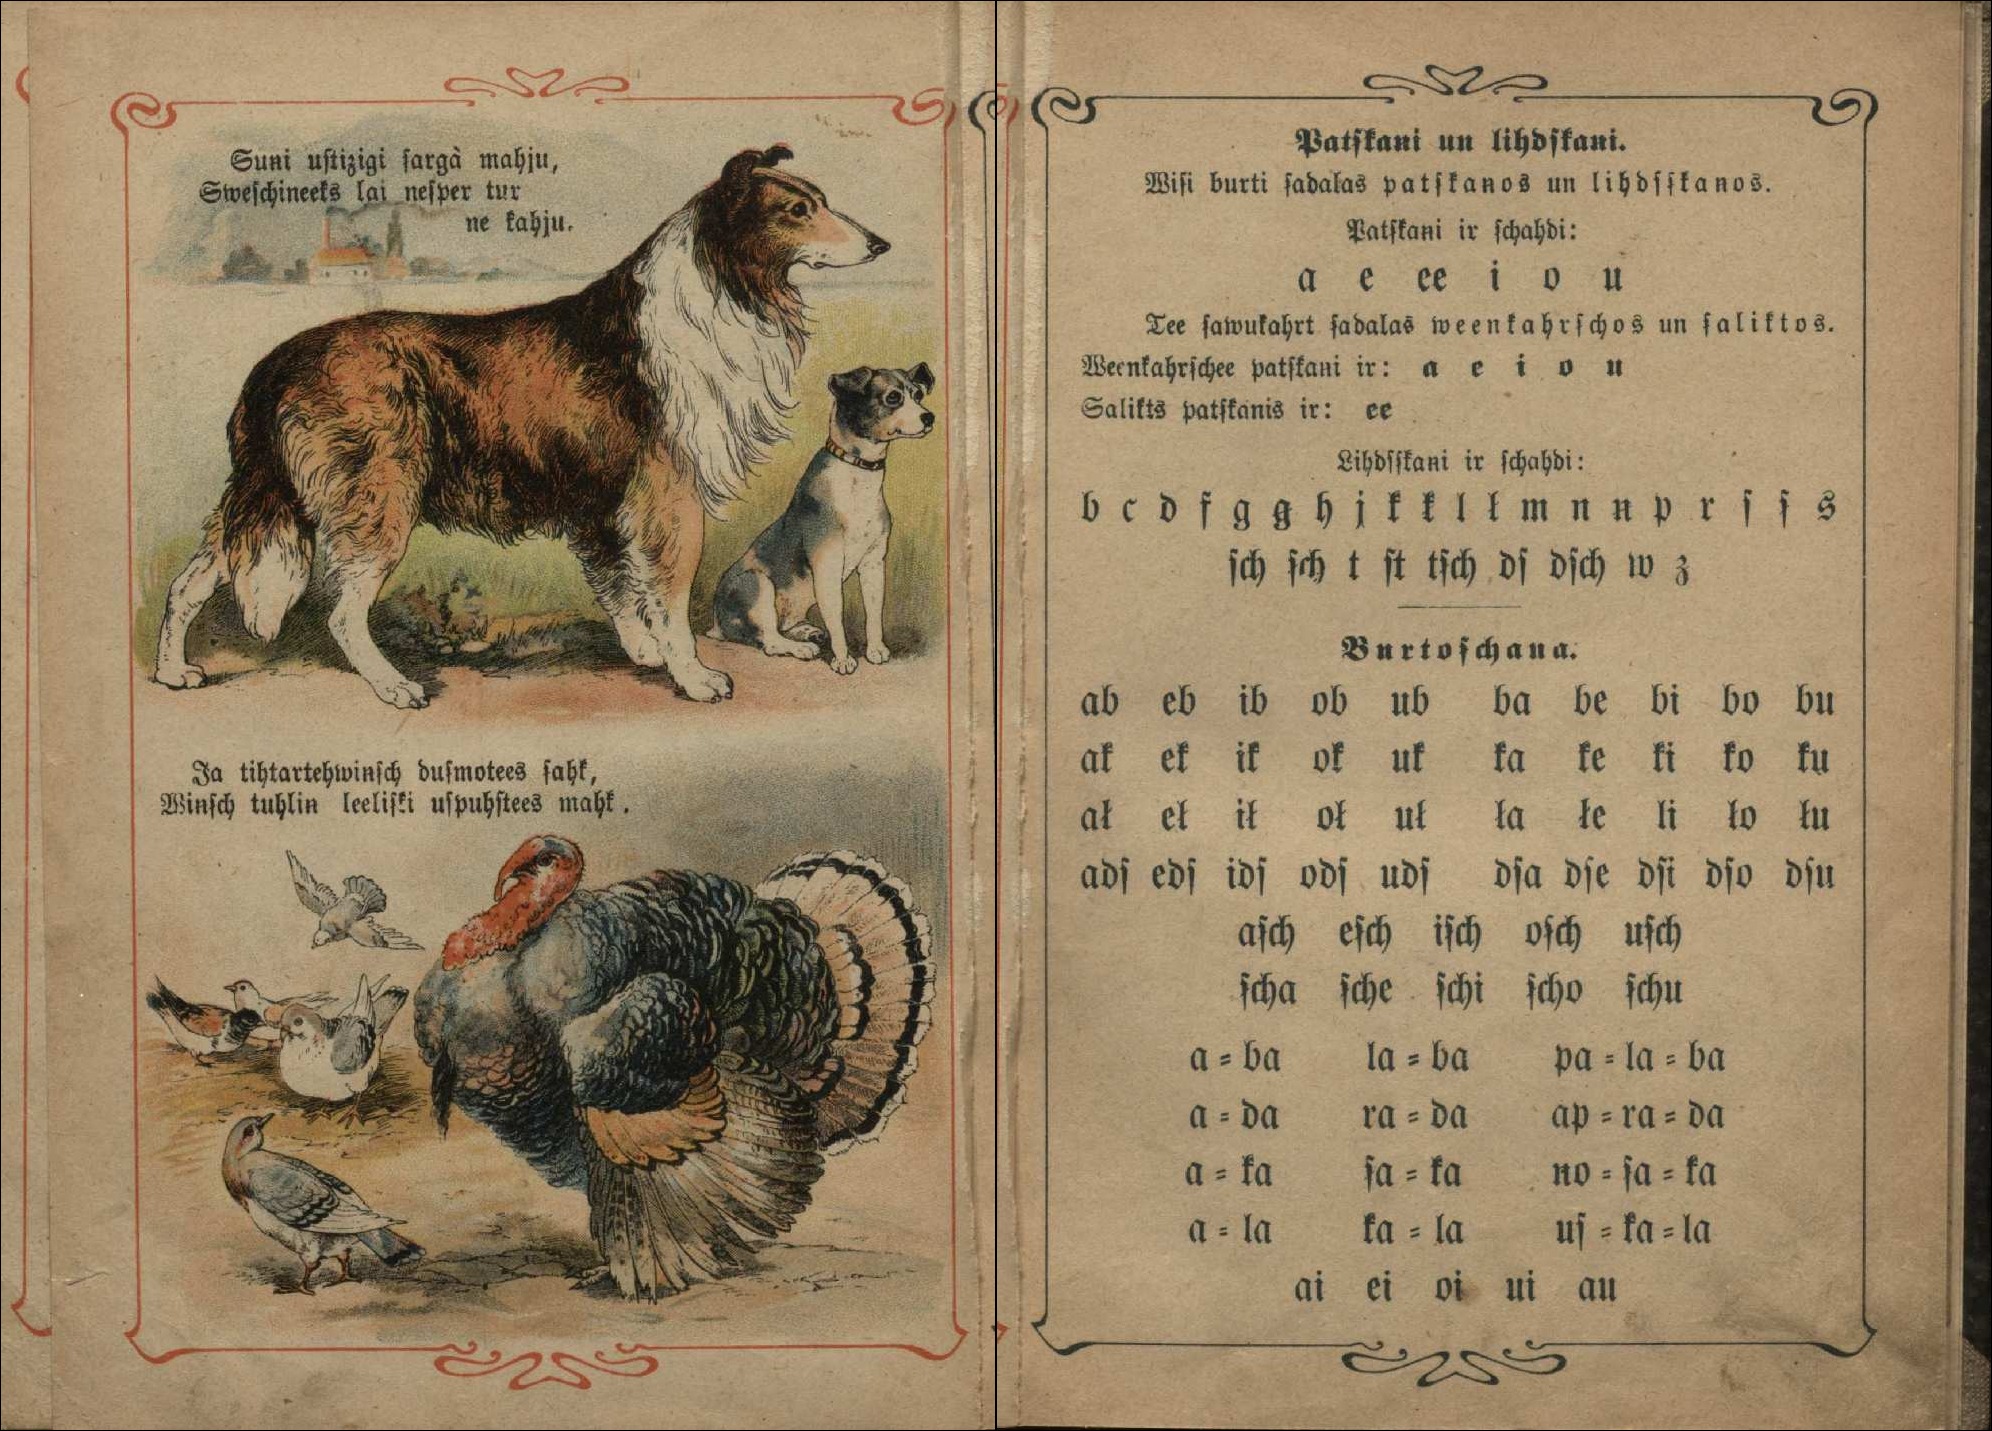 Suni uſtizigi ſargà mahju,
Sweſchineeks lai neſper tur
ne kahju.
Ja tihtartehwinſch duſmotees ſahk,
Winſch tuhlin leeliſki uſpuhſtees mahk.
Patſkani un lihdſſkani.
Wiſi burti ſadalas patſkanos un lihdſſkanos.
Patſkani ir ſchahdi:
a e ee i o u
Tee ſawukahrt ſadalas weenkahrſchos un ſaliktos.
Weenkahrſchee patſkani ir: a e i o u
Salikts patſkanis ir: ee
Lihdſſkani ir ſchahdi:
b c d f g g h j k ꞣ l ł m n n p r ſ ẜ s
ſch ẜch t ſt tſch dſ dſch w z
Burtoſchana.
ab eb ib ob ub ba be bi bo bu
ak ek ik ok uk ka ke ki ko ku
ał eł ił oł uł ła łe li ło łu
adſ edſ idſ odſ udſ dſa dſe dſi dſo dſu
aſch eſch iſch oſch uſch
ſcha ſche ſchi ſcho ſchu
a=ba la=ba pa=la=ba
a=da ra=da ap=ra=da
a=ka ſa=ka no=ſa=ka
a=la ka=la uſ=ka=la
ai ei oi ui au